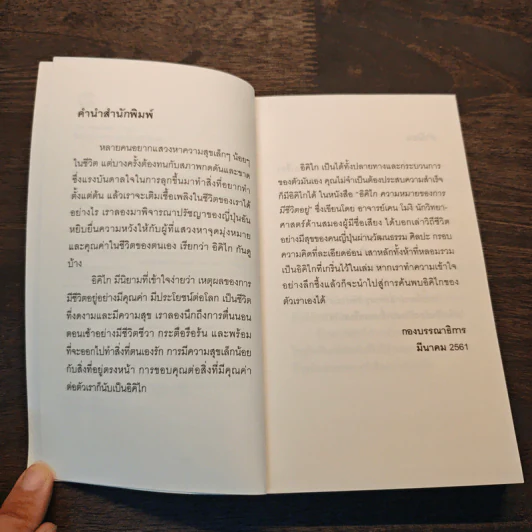 คำนำสำนักพิมพ์
หลายคนอยากแสวงหาความสุขเล็กๆ น้อยๆ
ในชีวิต แต่บางครั้งต้องทนกับสภาพกดดันและขาด
ซึ่งแรงบันดาลใจในการลุกขึ้นมาทำสิ่งที่อยากทำ
ตั้งแต่ต้น แล้วเราจะเติมเชื้อเพลิงในชีวิตของเราได้
อย่างไร เราลองมาพิจารณาปรัชญาของญี่ปุ่นอัน
หยิบยื่นความหวังให้กับผู้ที่แสวงหาจุดมุ่งหมาย
และคุณค่าในชีวิตของตนเอง เรียกว่า อิคิไก กันดู
บ้าง
อิคิไก มีนิยามที่เข้าใจง่ายว่า เหตุผลของการ
มีชีวิตอยู่อย่างมีคุณค่า มีประโยชน์ต่อโลก เป็นชีวิต
ที่งดงามและมีความสุข เราลองนึกถึงการตื่นนอน
ตอนเช้าอย่างมีชีวิตชีวา กระตือรือร้น และพร้อม
ที่จะออกไปทำสิ่งที่ตนเองรัก การมีความสุขเล็กน้อย
กับสิ่งที่อยู่ตรงหน้า การขอบคุณต่อสิ่งที่มีคุณค่า
ต่อตัวเราก็นับเป็นอิคิไก
อิคิไก เป็นได้ทั้งปลายทางและกระบวนการ
ของตัวมันเอง คุณไม่จำเป็นต้องประสบความสำเร็จ
ก็มีอิคิไกได้ ในหนังสือ “อิคิไก ความหมายของการ
มีชีวิตอยู่” ซึ่งเขียนโดย อาจารย์เคน โมงิ นักวิทยา-
ศาสตร์ด้านสมองผู้มีชื่อเสียง ได้บอกเล่าวิถีชีวิต
อย่างมีสุขของคนญี่ปุ่นผ่านวัฒนธรรม ศิลปะ กรอบ
ความคิดที่ละเอียดอ่อน เสาหลักทั้งห้าที่หลอมรวม
เป็นอิคิไกที่เกริ่นไว้ในเล่ม หากเราทำความเข้าใจ
อย่างลึกซึ้งแล้วก็จะนำไปสู่การค้นพบอิคิไกของ
ตัวเราเองได้
กองบรรณาธิการ
มีนาคม 2561